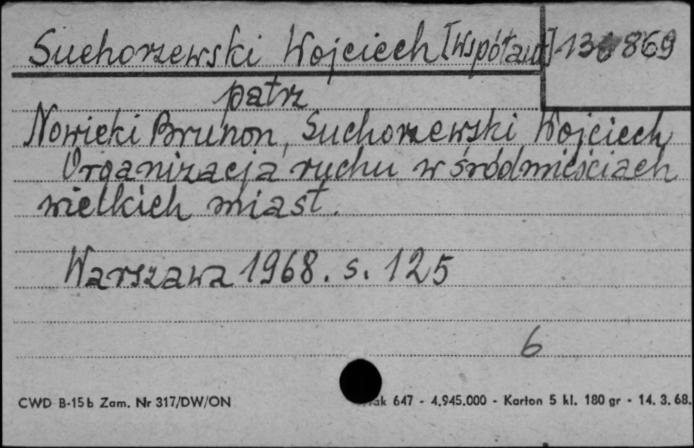 Suchorzewski Wojciech [Współaut]
patrz
Nowicki Brunon, Suchorzewski Wojciech
Organizacja ruchu w śródmieściach
wielkich miast.
Warszawa 1968. s. 125
6
CWD B-15b Zam. Nr 317/DW/ON
647 - 4.945.000 - Karton 5 kl. 180 gr - 14. 3. 68.